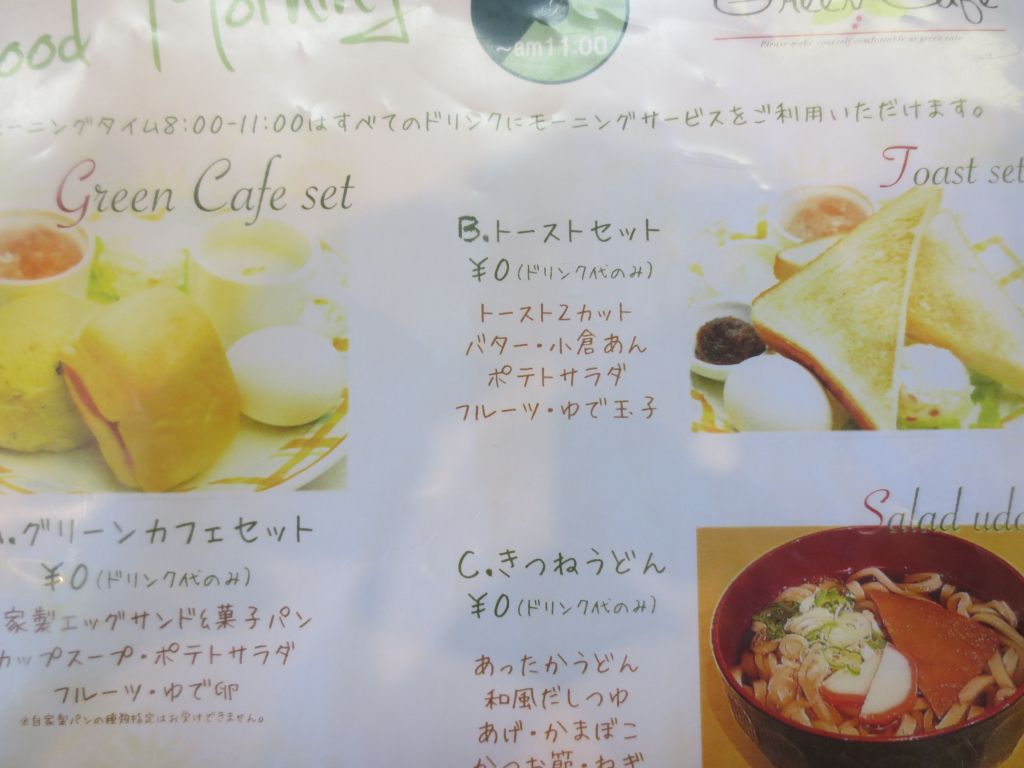 ood Morning
~am11.00
Green Cafe
Please make yourself comfortable at green cafe
モーニングタイム8:00-11:00はすべてのドリンクにモーニングサービスをご利用いただけます。
Green Cafe set
Toast set
B.トーストセット
¥0(ドリンク代のみ)
トースト2カット
バター・小倉あん
ポテトサラダ
フルーツ・ゆで玉子
A.グリーンカフェセット
¥0(ドリンク代のみ)
家製エッグサンド&菓子パン
カップスープ・ポテトサラダ
フルーツ・ゆで卵
※自家製パンの種類指定はお受けできません。
Salad udo
C.きつねうどん
¥0(ドリンク代のみ)
あったかうどん
和風だしつゆ
あげ・かまぼこ
かつお節・ねぎ